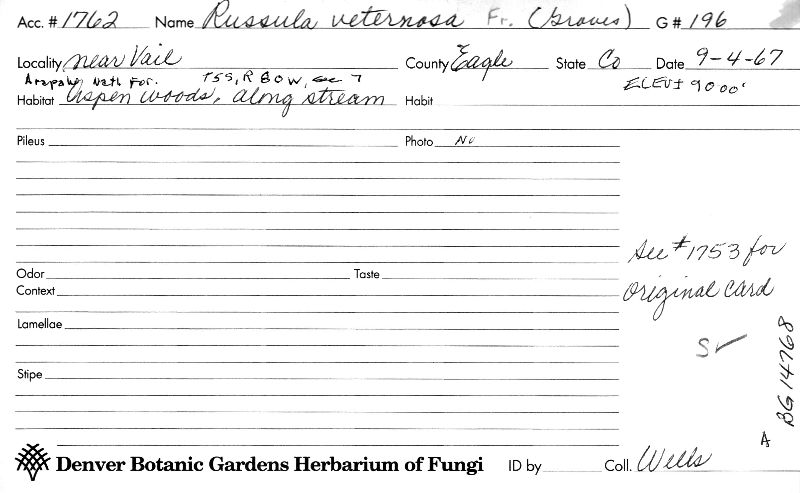 Acc. # 1762 Name Russula veternosa Fr. (Groves) G# 196
Locality near Vail County Eagle State Co Date 9-4-67
Arapaho Natl For. T5S, R 80W, Sec 7 ELEV± 9000'
Habitat Aspen woods, along stream Habit
Pileus Photo No
See #1753 for
Odor Taste
Context original card
Lamellae
S✓
Stipe
BG 14768
A
Denver Botanic Gardens Herbarium of Fungi ID by Coll. Wells